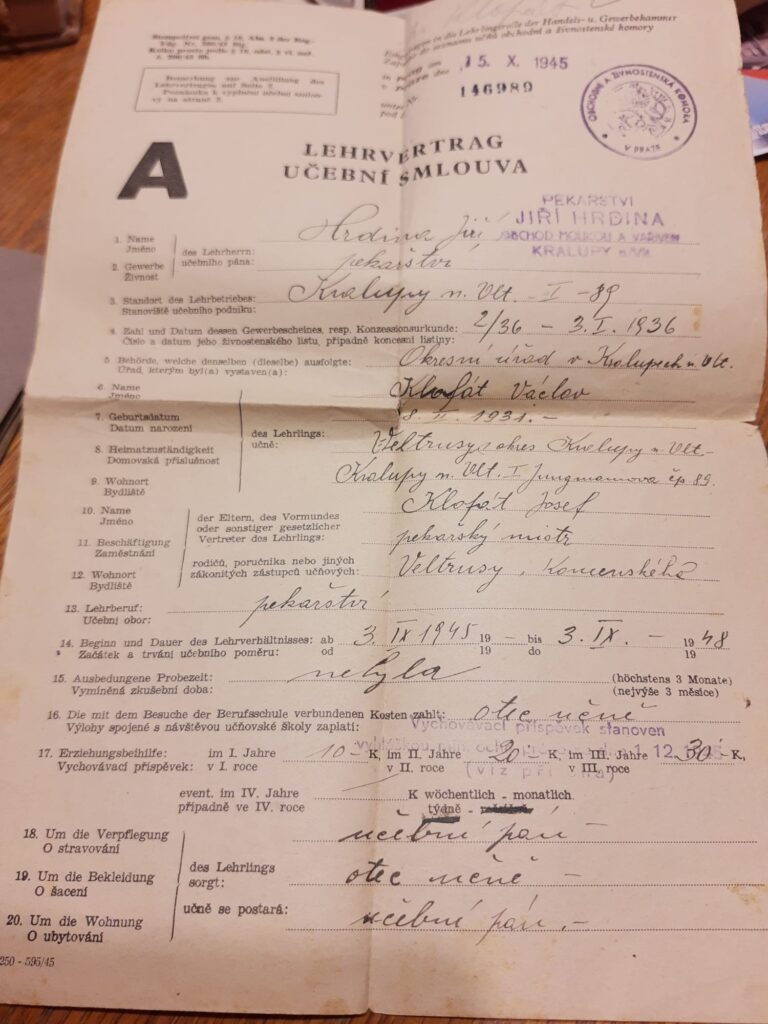 Klofát
Stempelfrei gem. § 18, Abs. 2 der Reg.
Vdg. Nr. 260/42 Slg.
Kolku prosto podle § 18, odst. 2 vl. nař.
č. 260/42 Sb.
in die Lehrlingsrolle der Handels- u. Gewerbekammer
do seznamu učňů obchodní a živnostenské komory
15. X. 1945
146989
OBCHODNÍ A ŽIVNOSTENSKÁ KOMORA
V PRAZE
Bemerkung zur Ausfüllung des
Lehrvertrages auf Seite 2.
Poznámka k vyplnění učební smlou-
vy na straně 2.
A
LEHRVERTRAG
UČEBNÍ SMLOUVA
PEKAŘSTVÍ
JIŘÍ HRDINA
OBCHOD MOUKOU A VAŘIVEM
KRALUPY n/Vlt.
1. Name
Jméno
Hrdina Jiří
des Lehrherrn:
učebního pána:
2. Gewerbe
Živnost
pekařství
3. Standort des Lehrbetriebes:
Stanoviště učebního podniku:
Kralupy n. Vlt. - I - 89
4. Zahl und Datum dessen Gewerbescheines, resp. Konzessionsurkunde:
Číslo a datum jeho živnostenského listu, případně koncesní listiny:
2/36 - 3. I. 1936
5. Behörde, welche denselben (dieselbe) ausfolgte:
Úřad, kterým byl(a) vystaven(a):
Okresní úřad v Kralupech n. Vlt.
6. Name
Jméno
Klofát Václav
7. Geburtsdatum
Datum narození
8. II. 1931. -
des Lehrlings:
učně:
8. Heimatzuständigkeit
Domovská příslušnost
Veltrusy, okres Kralupy n. Vlt.
9. Wohnort
Bydliště
Kralupy n. Vlt. I Jungmannova čp 89.
10. Name
Jméno
Klofát Josef
der Eltern, des Vormundes
oder sonstiger gesetzlicher
Vertreter des Lehrlings:
11. Beschäftigung
Zaměstnání
pekařský mistr
rodičů, poručníka nebo jiných
zákonitých zástupců učňových:
12. Wohnort
Bydliště
Veltrusy, Komenského
13. Lehrberuf:
Učební obor:
pekařství
14. Beginn und Dauer des Lehrverhältnisses: ab 3. IX 1945 19 - bis 3. IX. - 1948
Začátek a trvání učebního poměru: od 19 do 19
15. Ausbedungene Probezeit: nebyla (höchstens 3 Monate)
Vymíněná zkušební doba: (nejvýše 3 měsíce)
16. Die mit dem Besuche der Berufsschule verbundenen Kosten zahlt: otec učně
Výlohy spojené s návštěvou učňovské školy zaplatí:
Vychovávací příspěvek stanoven
1.12.1945
17. Erziehungsbeihilfe: im I. Jahre 10 - K, im II. Jahre 20 - K, im III. Jahre 30 - K,
Vychovávací příspěvek: v I. roce v II. roce v III. roce
event. im IV. Jahre K wöchentlich - monatlich.
případně ve IV. roce týdně -
18. Um die Verpflegung
O stravování
učební pán -
19. Um die Bekleidung
O šacení
des Lehrlings
sorgt:
otec učně -
učně se postará:
20. Um die Wohnung
O ubytování
učební pán. -
250 - 595/45